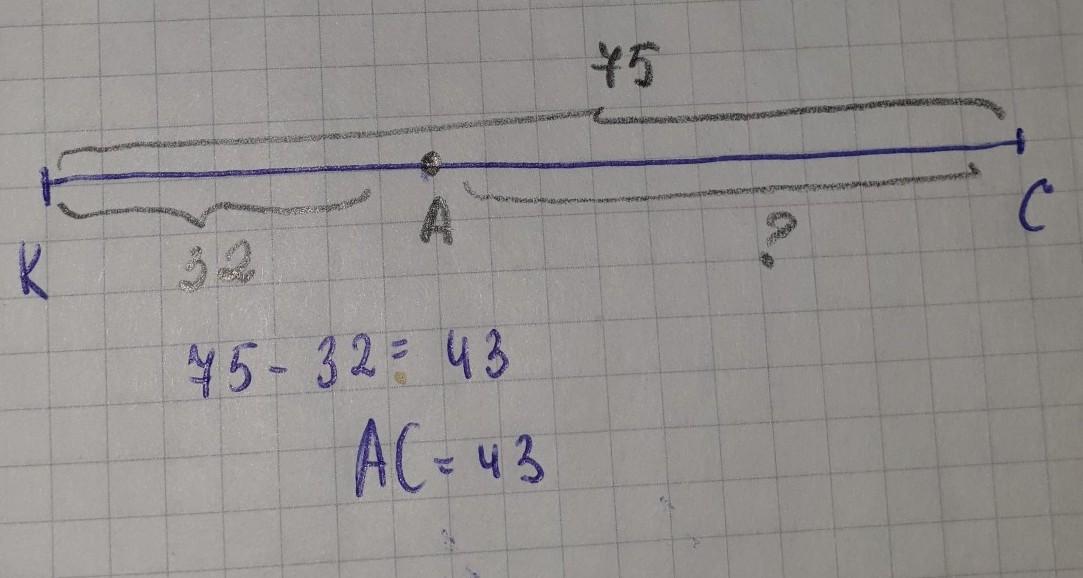 75
K 32 A ? C
75 - 32 = 43
AC = 43